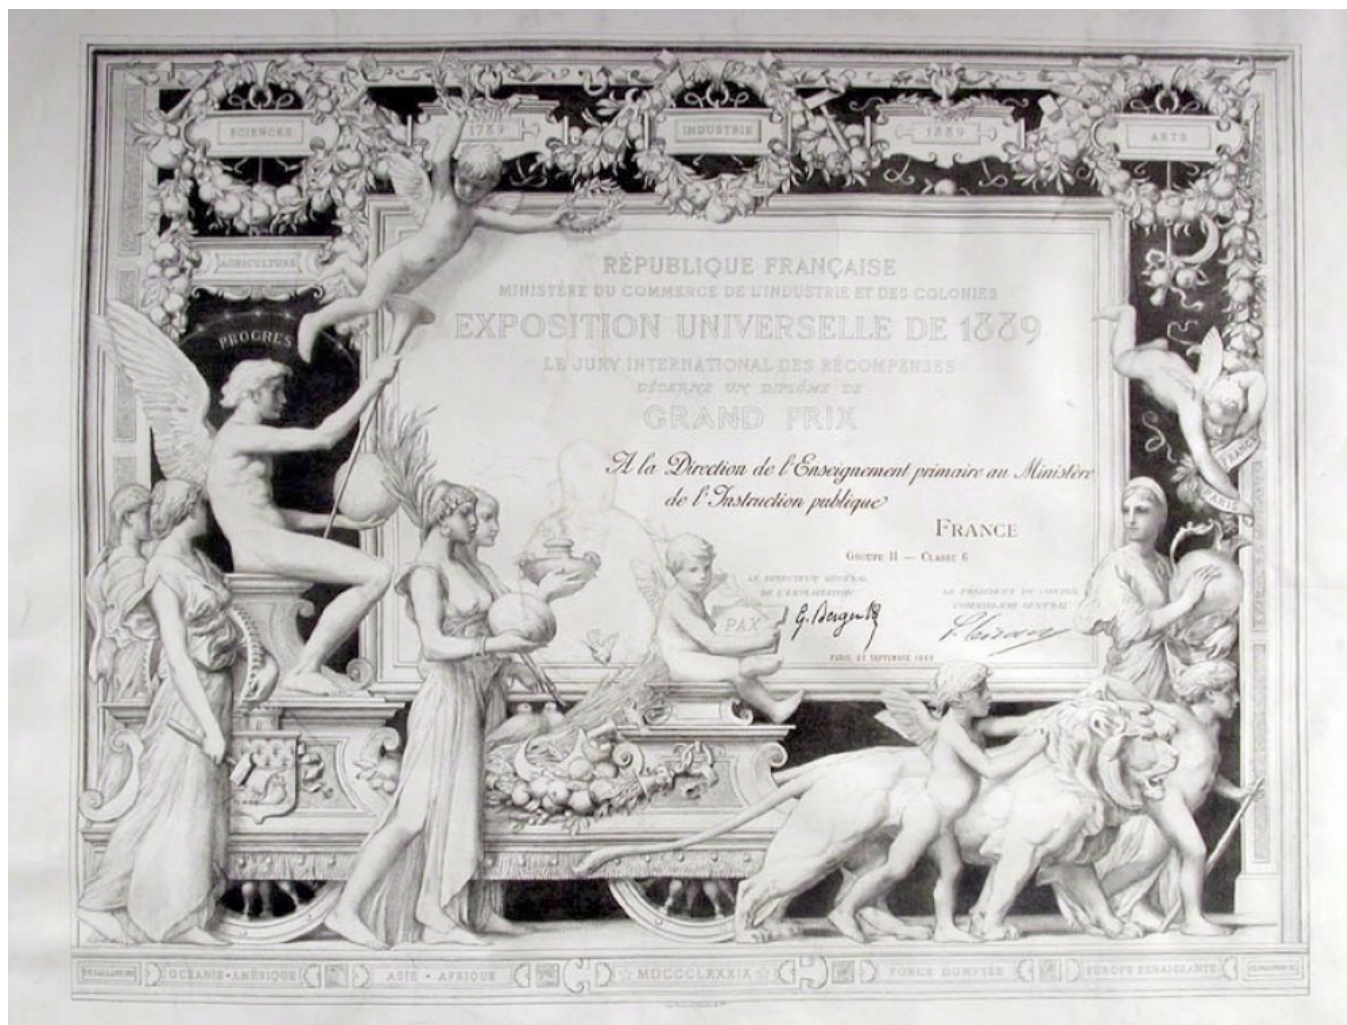 SCIENCES
1789
INDUSTRIE
1889
ARTS
AGRICULTURE
PROGRES
RÉPUBLIQUE FRANÇAISE
MINISTÈRE DU COMMERCE DE L'INDUSTRIE ET DES COLONIES
EXPOSITION UNIVERSELLE DE 1889
LE JURY INTERNATIONAL DES RÉCOMPENSES
DÉCERNE UN DIPLÔME DE
GRAND PRIX
A la Direction de l'Enseignement primaire au Ministère
de l'Instruction publique
FRANCE
GROUPE II — CLASSE 6
LE DIRECTEUR GÉNÉRAL
DE L'EXPLOITATION
LE PRÉSIDENT DU CONSEIL
COMMISSAIRE GÉNÉRAL
G. Berger
PARIS, 29 SEPTEMBRE 1889
FRANCE
PARIS
PAX
OCEANIE • AMÉRIQUE
ASIE • AFRIQUE
MDCCCLXXXIX
FORCE DOMPTÉE
EUROPE RENAISSANTE